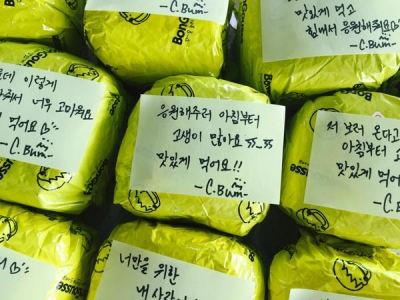 BonGousse
-C.Bum-
맛있게 먹고
힘내서 응원해줘요
-C.Bum-
이렇게
너무 고마워요
먹어요
-C.Bum-
응원해주러 아침부터
고생이 많아요 ㅠ_ㅠ
맛있게 먹어요!!
-C.Bum-
보러 온다고
아침부터
맛있게 먹어요
-C.Bum-
너만을 위한
내